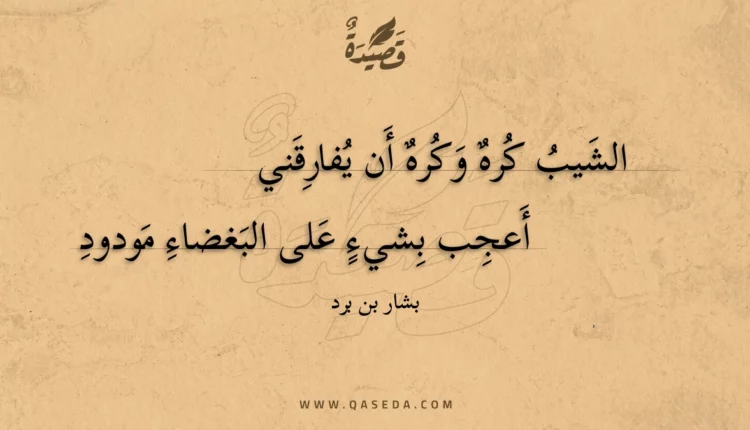 قَصِيدَةٌ
الشَيبُ كُرهٌ وَكُرهٌ أَن يُفارِقَني
أَعجِب بِشيءٍ عَلى البَغضاءِ مَودودِ
بشار بن برد
WWW.QASEDA.COM